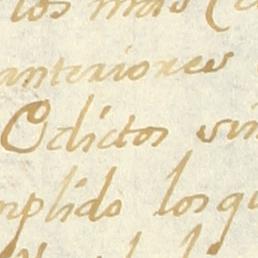 los mas
anteriores
Edictos sin
mplido los qu